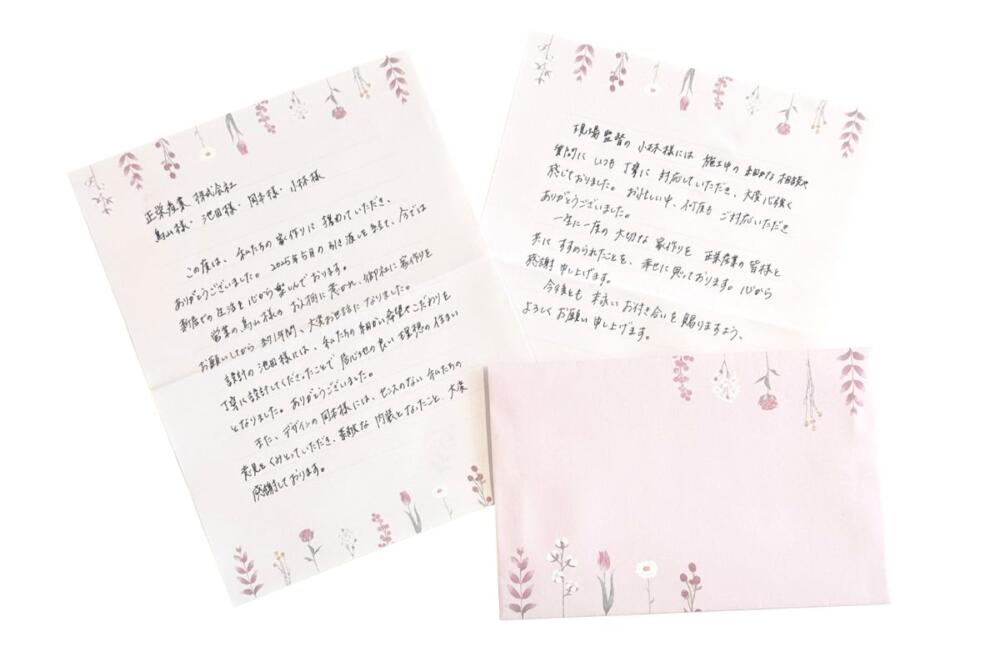 正栄産業 株式会社
鳥山様・池田様・岡本様・小林様
この度は、私たちの家作りに携わっていただき、
ありがとうございました。2025年5月の引き渡しを経て、今では
新居での生活を心から楽しんでおります。
営業の鳥山様のお人柄に惹かれ、御社に家作りを
お願いしてから約1年間、大変お世話になりました。
設計の池田様には、私たちの細かい希望やこだわりを
丁寧に設計してくださったことで居心地の良い理想の住まい
となりました。ありがとうございました。
また、デザインの岡本様には、センスのない私たちの
意見もくみとっていただき、素敵な内装となったこと、大変
感謝しております。
現場監督の小林様には施工中の細かな相談や
質問にいつも丁寧に対応していただき、大変心強く
感じておりました。お忙しい中、何度もご対応いただき
ありがとうございました。
一生に一度の大切な家作りを正栄産業の皆様と
共にすすめられたことを、幸せに思っております。心から
感謝申し上げます。
今後とも末永いお付き合いを賜りますよう、
よろしくお願い申し上げます。